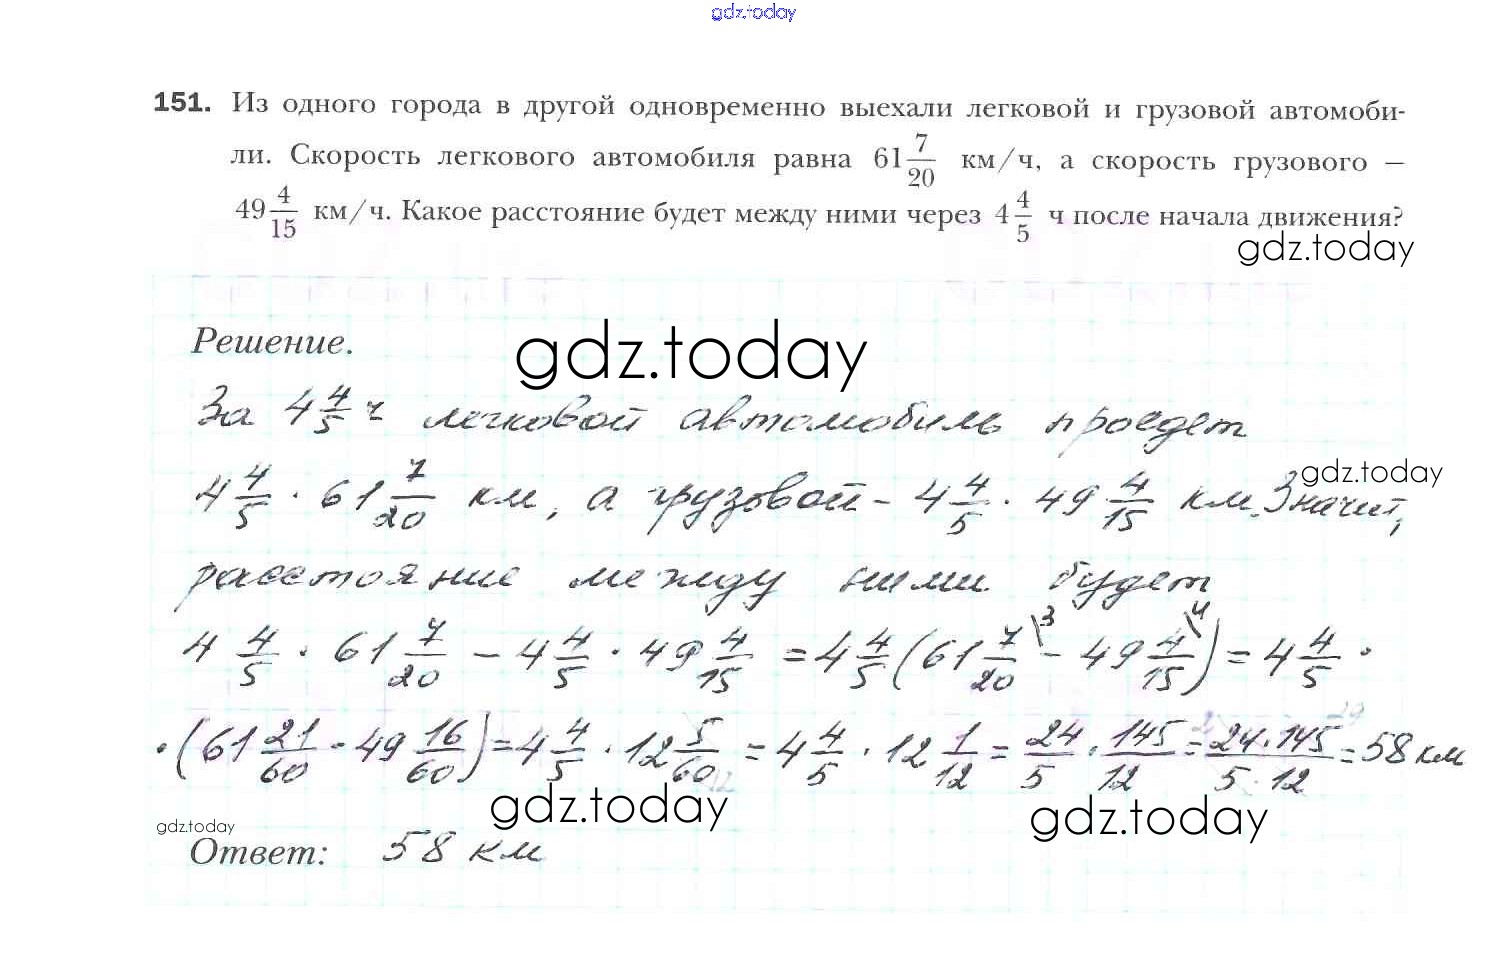 gdz.today
151. Из одного города в другой одновременно выехали легковой и грузовой автомоби-
ли. Скорость легкового автомобиля равна 61 7/20 км/ч, а скорость грузового –
49 4/15 км/ч. Какое расстояние будет между ними через 4 4/5 ч после начала движения?
gdz.today
Решение.
gdz.today
За 4 4/5 ч легковой автомобиль проедет
gdz.today
4 4/5 · 61 7/20 км, а грузовой – 4 4/5 · 49 4/15 км. Значит,
расстояние между ними будет
4 4/5 · 61 7/20 - 4 4/5 · 49 4/15 = 4 4/5 (61 7/20 \3 - 49 4/15 \4) = 4 4/5 ·
· (61 21/60 - 49 16/60) = 4 4/5 · 12 5/60 = 4 4/5 · 12 1/12 = 24/5 · 145/12 = 24·145/5·12 = 58 км
gdz.today
gdz.today
gdz.today
Ответ: 58 км